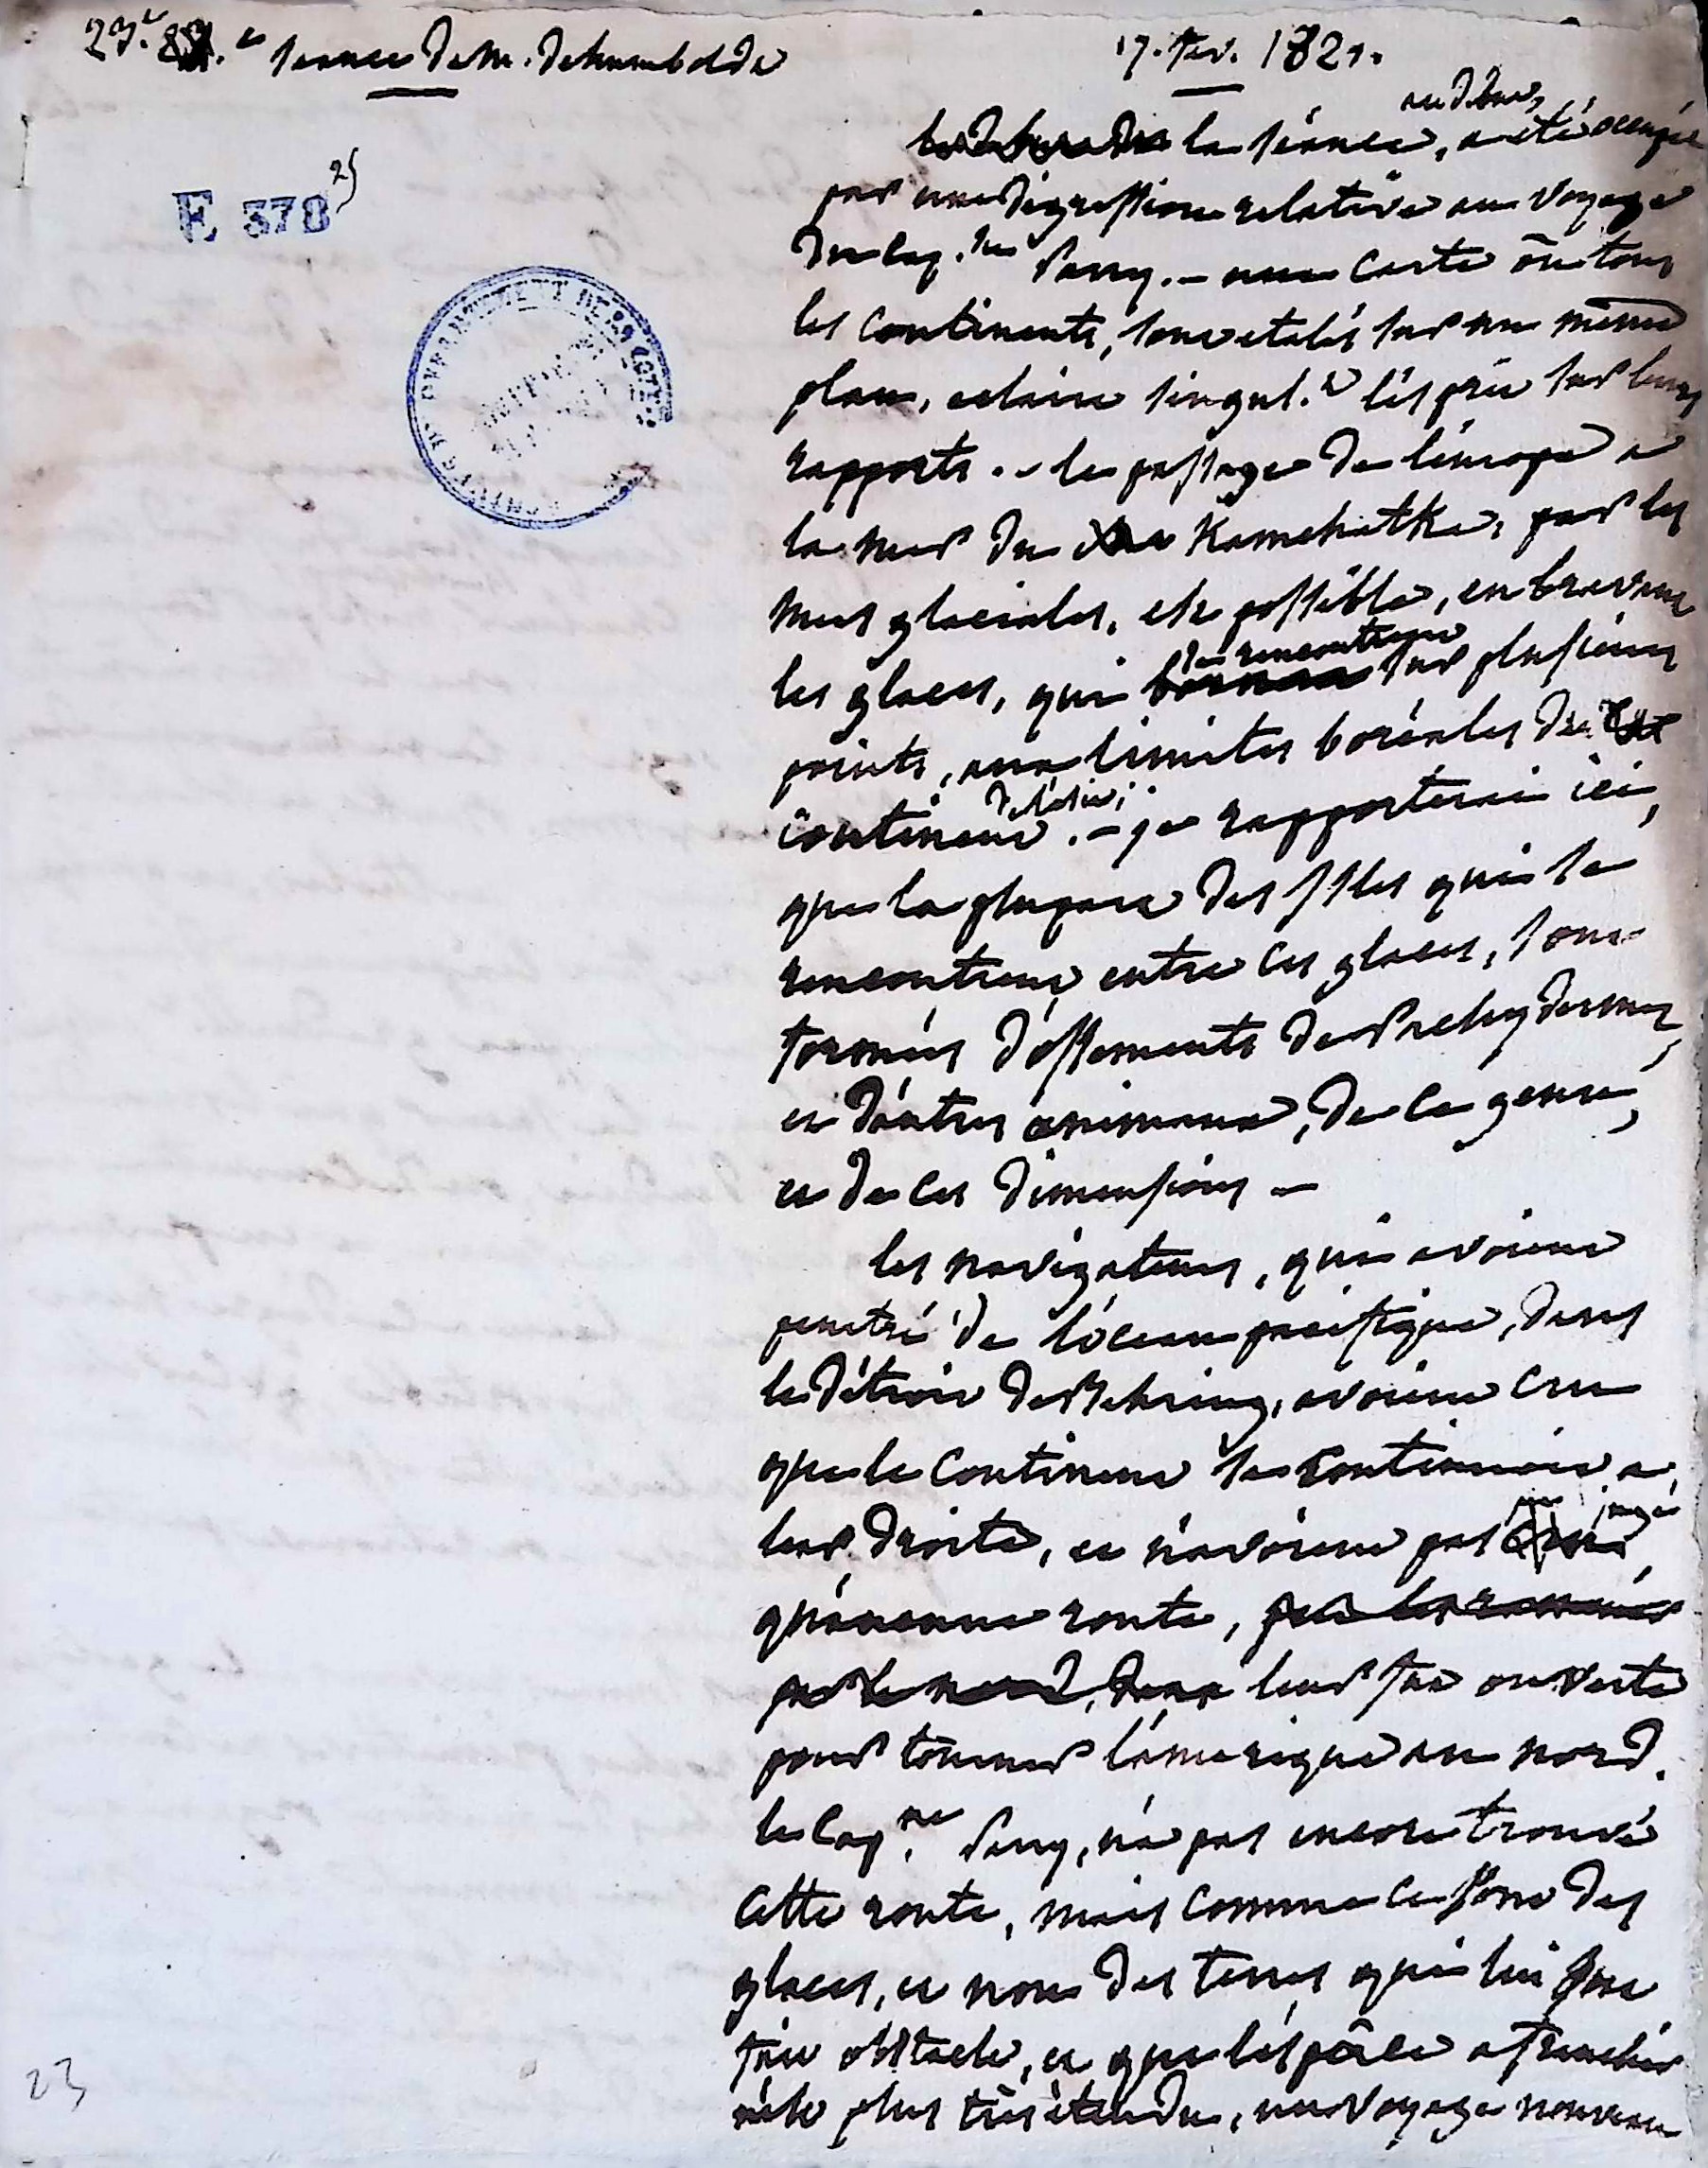 23.e séance de M. de humboldt
17. fev. 1821.
E 378 25
au début,
la séance, a été occupée
par une digression relative au voyage
du cap.ne Parry. – une carte où tous
les continents, sont etalés sur un même
plan, eclaire singul.t l'esprit sur leurs
rapports. – le passage de l'europe a
la mer du Kamchatka, par les
mers glaciales, est possible, en bravant
se rencontrent
les glaces, qui sur plusieurs
points, aux limites boréales du
de l'asie;
continent. – je rapporterai ici,
que la plupart des isles qui se
rencontrent entre ces glaces, sont
formées d'ossements de Pachydermes,
et d'autres animaux, de ce genre,
et de ces dimensions –
les navigateurs, qui avoient
penetré de l'océan pacifique, dans
le détroit de Behring, avoient cru
que le continent se continuoit a
jugé
leur droite, et n'avoient pas
qu'aucune route, leur fut ouverte
pour tourner l'amerique au nord.
le cap.ne Parry, n'a pas encore trouvé
cette route, mais comme ce sont des
glaces, et non des terres qui lui font
fait obstacle, et que l'espace a franchir
n'est plus très étendu, un voyage nouveau
23